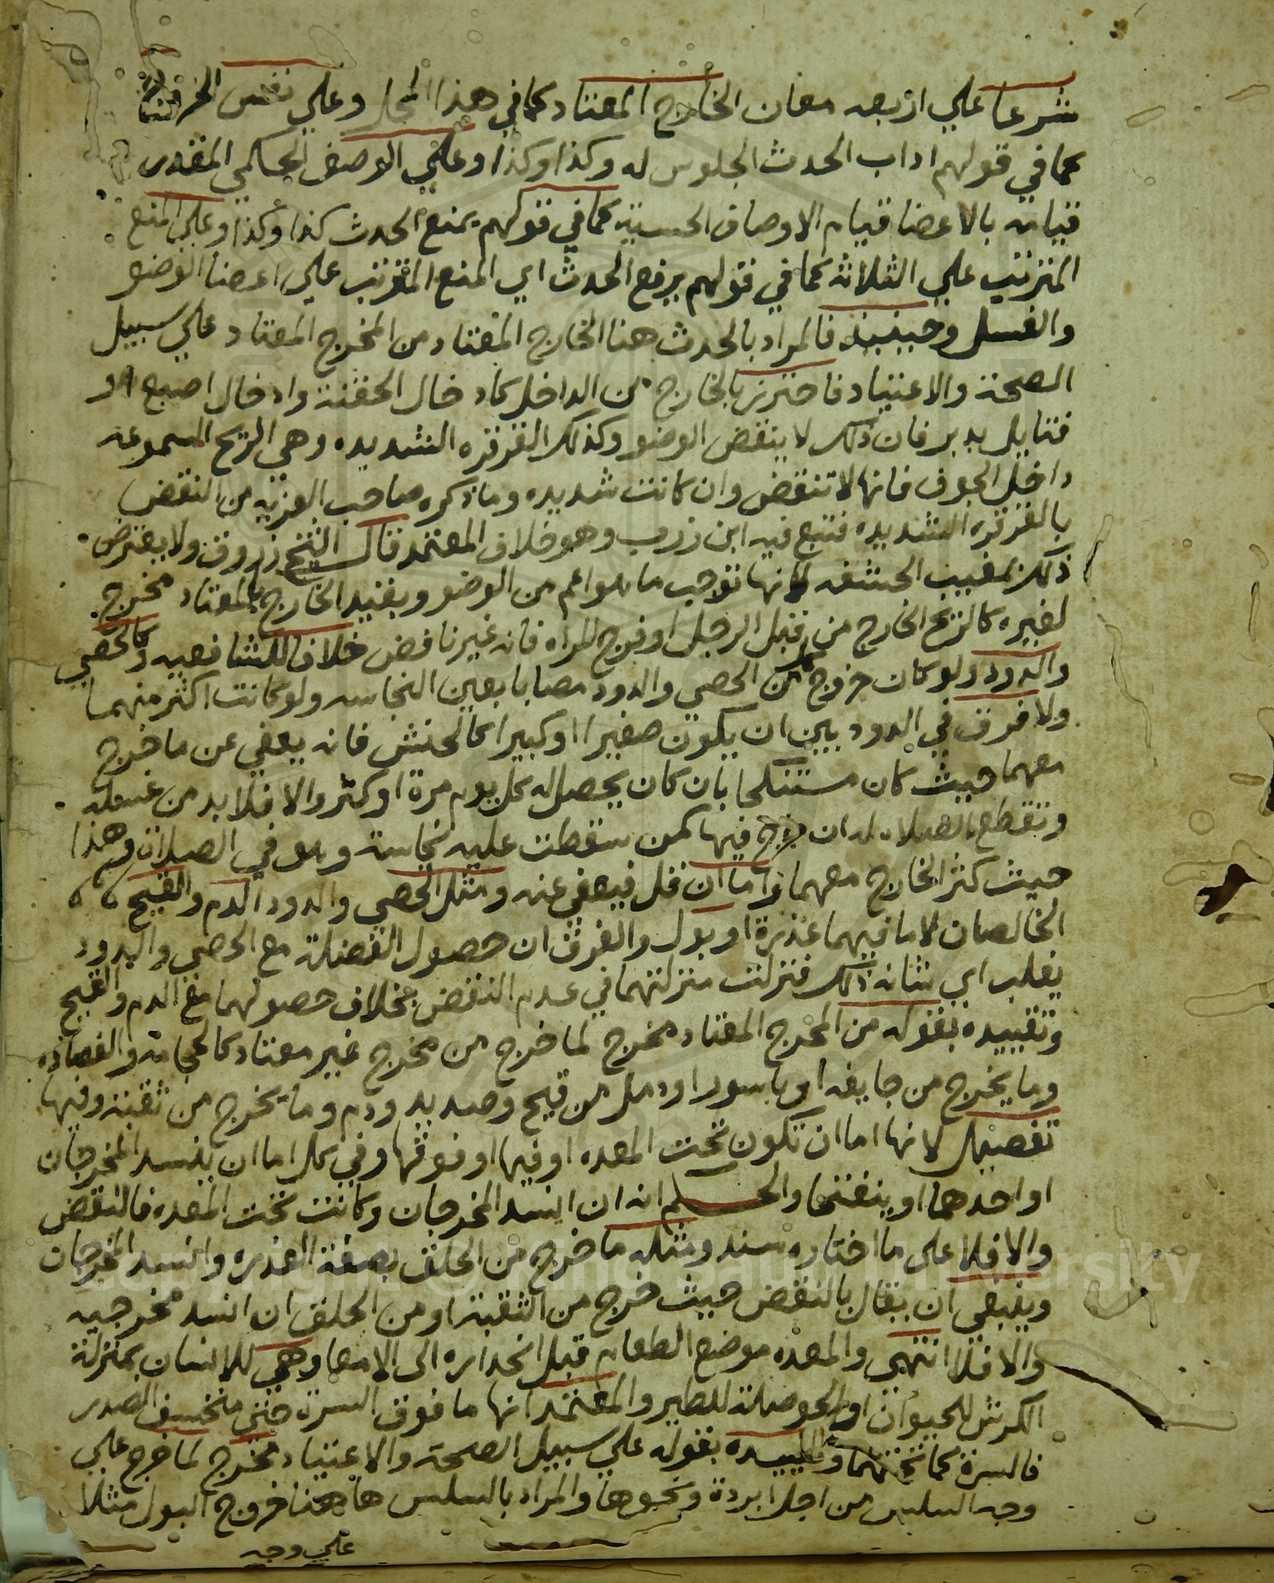 شرعا علي اربعه معان الخارج المعتاد كما في هذا المحل وعلي نفس الخروج
كما في قولهم اداب الحدث الجلوس له وكذا وكذا وعلي الوصف الحكمي المقدر
قيامه بالاعضا قيام الاوصاف الحسيه كما في قولهم يمنع الحدث كذا وكذا وعلي المنع
المترتب علي الثلاثه كما في قولهم يرفع الحدث اي المنع المترتب علي اعضا الوضو
والغسل وحينيذ فالمراد بالحدث هنا الخارج المعتاد من المخرج المعتاد علي سبيل
الصحة والاعتياد فاحترز بالخارج من الداخل كادخال الحقنة وادخال اصبع او
فتايل بدبر فان ذلك لا ينقض الوضو وكذلك القرقره الشديده وهي الريح المسموعه
داخل الجوف فانها لا تنقض وان كانت شديده وما ذكره صاحب العزيه من النقض
بالقرقره الشديده فتبع فيه ابن زرب وهو خلاف المعتمد قال الشيخ زروق ولا يعترض
ذلك بمغيب الحشفه لانها توجب ما هو اعم من الوضو وبقيد الخارج بالمعتاد مخرج
لغيره كالريح الخارج من قبل الرجل او فرج المراه فانه غير ناقض خلافا للشافعيه وكالحصي
والدود ولو كان خروج من الحصي والدود مصابا بعين النجاسه ولو كانت اكثر منهما
ولا فرق في الدود بين ان يكون صغيرا او كبيرا كالحنش فانه يعفي عن ما خرج
معهما حيث كان مستنكحا بان كان يحصل له كل يوم مرة او كثر والا فلا بد من غسله
وتقطع الصلاه له ان خرج فيها كمن سقطت عليه نجاسة وهو في الصلاة وهذا
حيث كثر الخارج معهما واما ان قل فيعفي عنه ومثل الحصي والدود الدم والقيح
الخالصان لا ما فيهما عذرة او بول والفرق ان حصول الفضلة مع الحصي والدود
يغلب اي شانه ذلك فنزلت منزلتهما في عدم النقض بخلاف حصولهما مع الدم والقيح
وتقييده بقوله من المخرج المعتاد مخرج لما خرج من مخرج غير معتاد كالحجامة والفصاده
وما يخرج من جايفه او باسور او دمل من قيح وصديد ودم وما يخرج من ثقبة وفيها
تفصيل لانها اما ان تكون تحت المعده او فيها او فوقها وفي كل اما ان ينسد المخرجان
او احدهما او ينفتحا والحكم انه ان انسد المخرجان وكانت تحت المعده فالنقض
والا فلا علي ما اختاره سند ومثله ما خرج من الحلق بصفة العذره وانسد المخرجان
وينبغي ان يقال بالنقض حيث خرج من الثقبة او من الحلق ان انسد مخرجيه
والا فلا انتهي والمعده موضع الطعام قبل انحداره الي الامعا وهي للانسان بمنزلة
الكرش للحيوان او الحوصلة للطير والمعتمد انها ما فوق السرة حتي منخسف الصدر
فالسرة كما تحتهما وتقييده بقوله علي سبيل الصحة والاعتياد مخرج لما خرج علي
وجه السلس من اجل ابردة ونحوها والمراد بالسلس هاهنا خروج البول مثلا
علي وجه